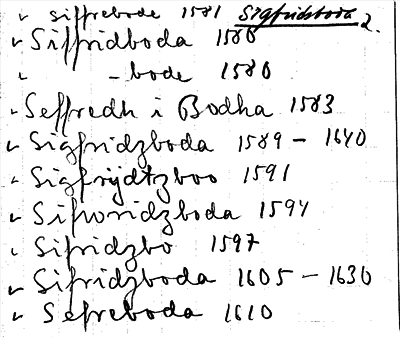 siffrebode 1581 Sigfridsboda 2.
Siffridboda 1580
-bode 1580
Seffredh i Bodha 1583
Sigfridzboda 1589 - 1640
Sigfrijdtzboo 1591
Sifwridzboda 1594
Sifridzbo 1597
Sifridzboda 1605 - 1630
Sefreboda 1610